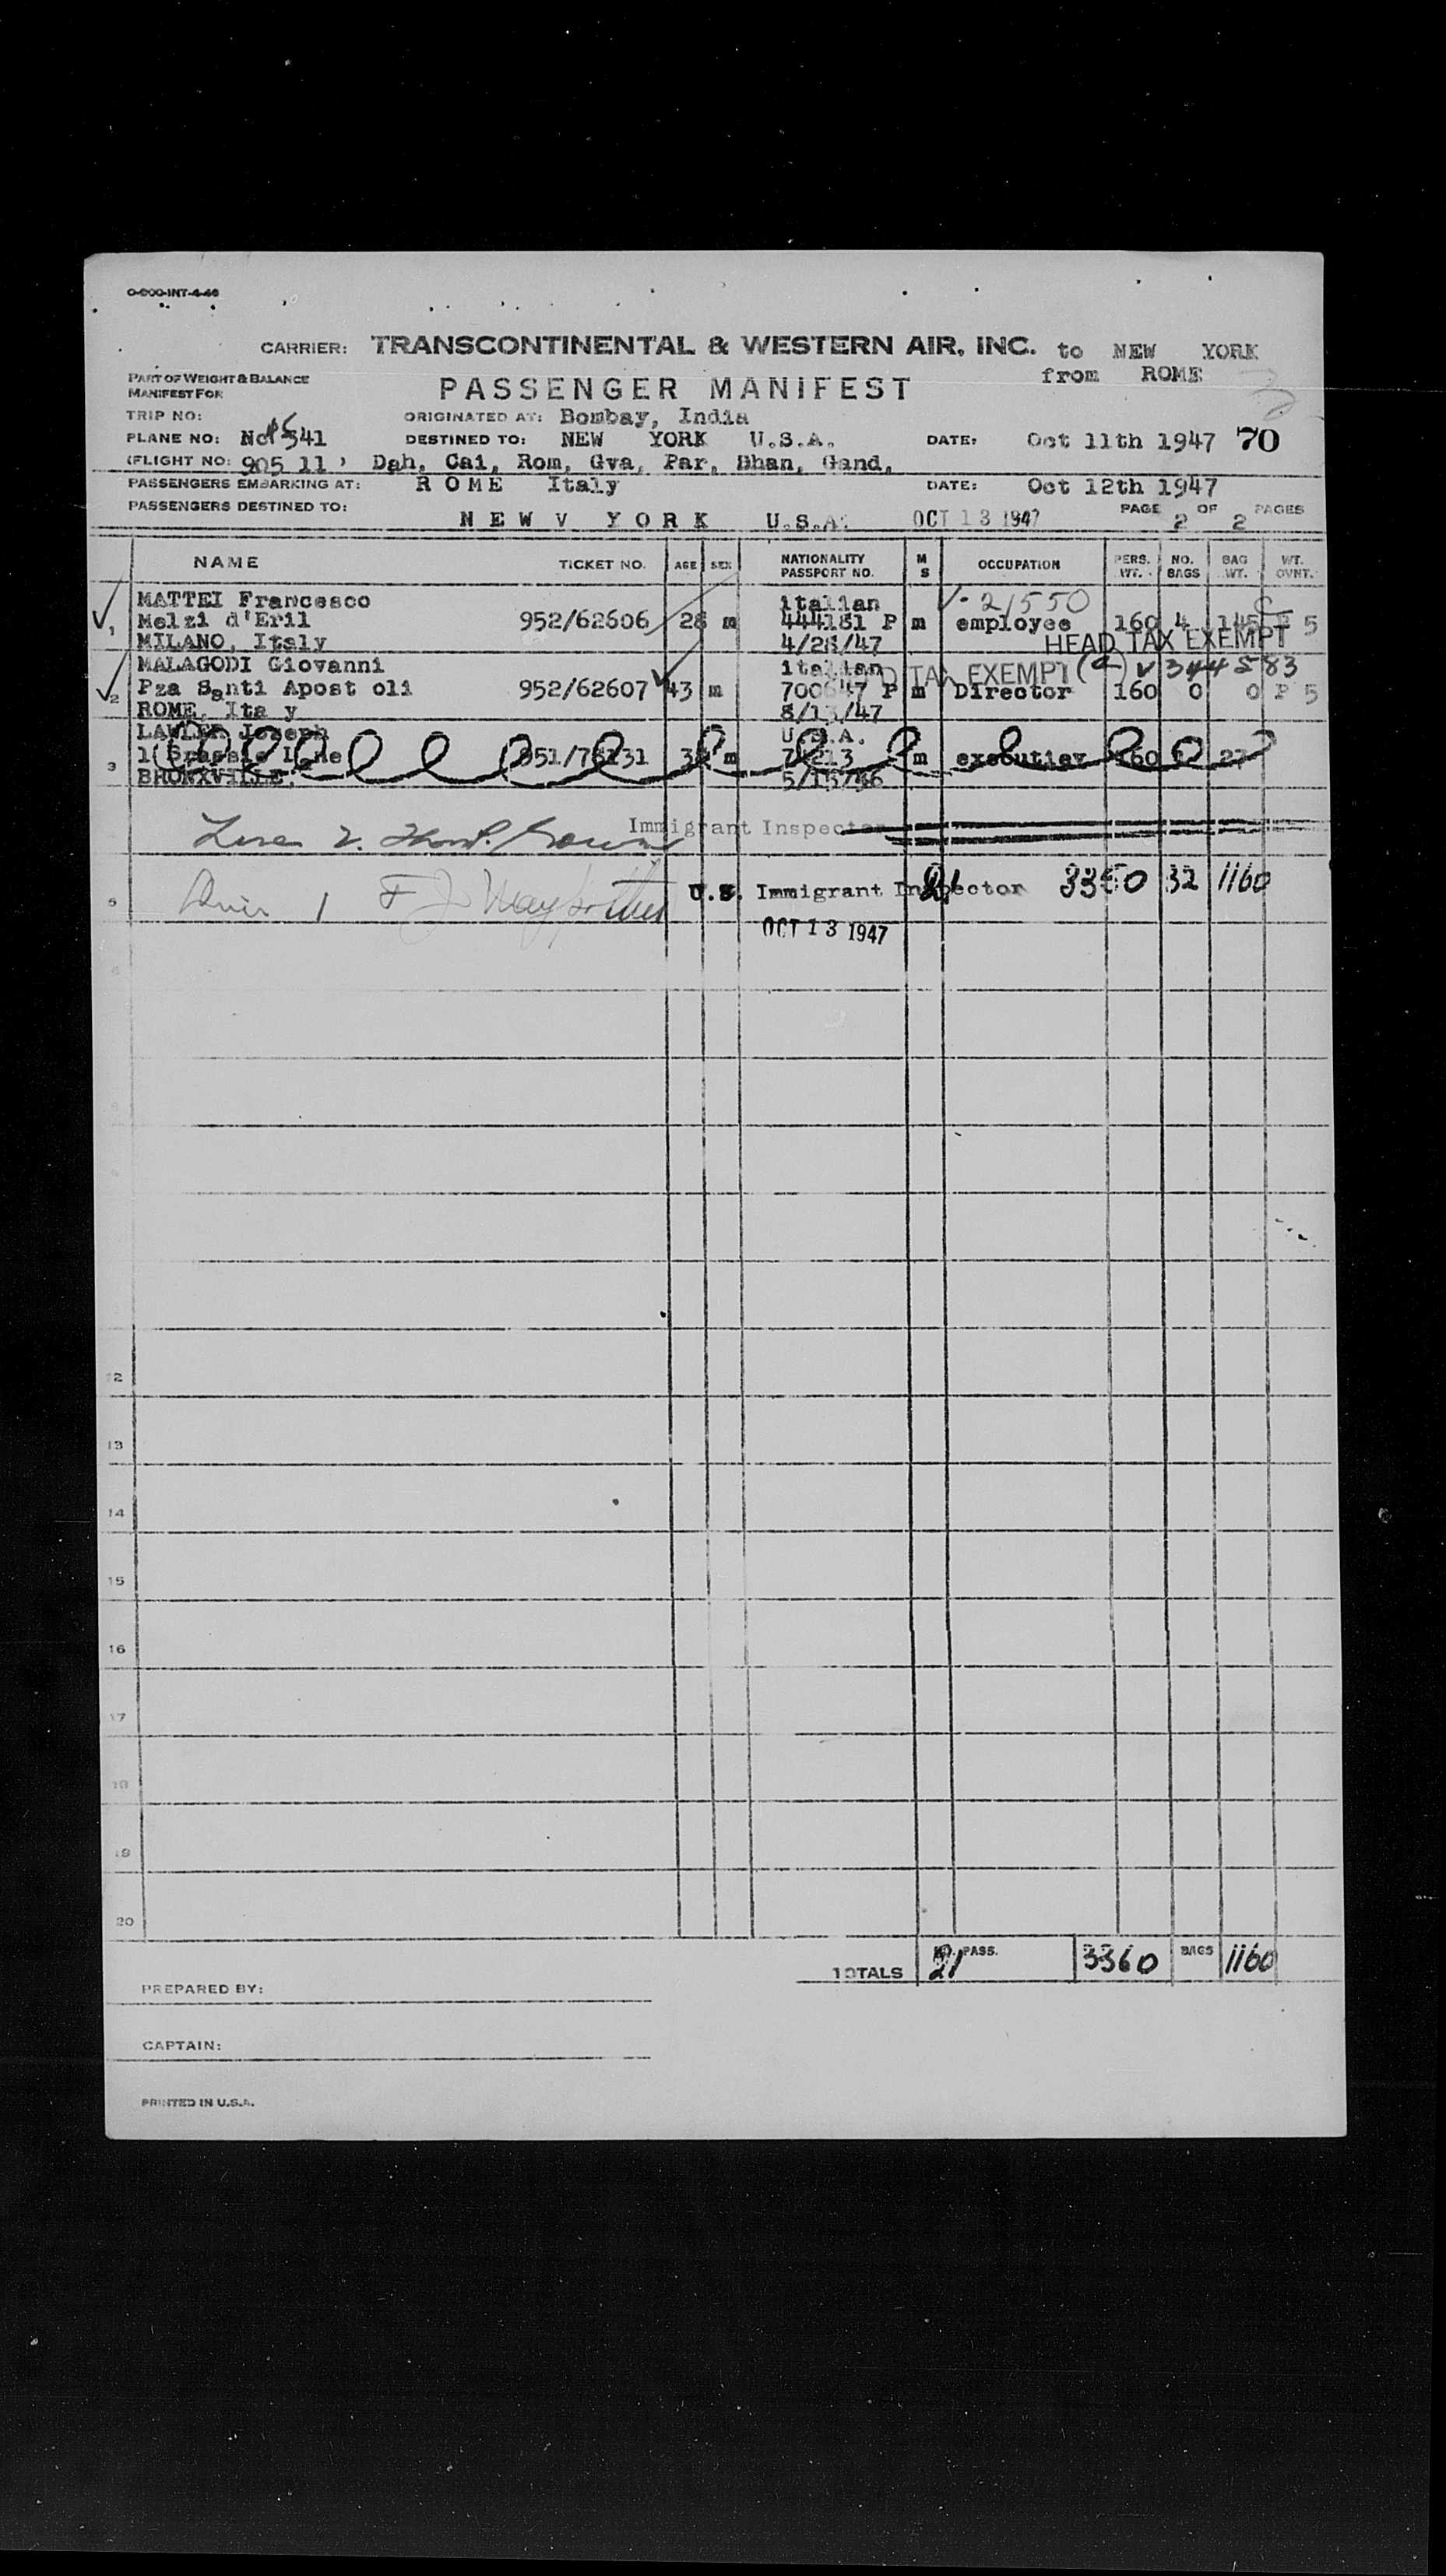 O-800-INT-4-46
CARRIER: TRANSCONTINENTAL & WESTERN AIR, INC. to NEW YORK
PART OF WEIGHT & BALANCE
MANIFEST FOR
PASSENGER MANIFEST from ROME
TRIP NO: ORIGINATED AT: Bombay, India
PLANE NO: 541 DESTINED TO: NEW YORK U.S.A. DATE: Oct 11th 1947 70
(FLIGHT NO: 905 11, Dah, Cai, Rom, Gva, Par, Shan, Gand,
PASSENGERS EMBARKING AT: ROME Italy DATE: Oct 12th 1947
PASSENGERS DESTINED TO: NEW V YORK U.S.A. OCT 13 1947 PAGE 2 OF 2 PAGES
NAME TICKET NO. AGE SEX NATIONALITY PASSPORT NO. M S OCCUPATION PERS. WT. NO. BAGS BAG WT. WT. OVNT.
MATTEI Francesco italian V-21550
1 Melzi d'Eril 952/62606 28 m 444181 P m employee 160 4 145 5
MILANO, Italy 4/28/47 HEAD TAX EXEMPT
MALAGODI Giovanni italian HEAD TAX EXEMPT V 344583
2 Pza Santi Apost oli 952/62607 43 m 700647 P m Director 160 0 0 P 5
ROME, Ita y 8/13/47
LAWLER Joseph U.S.A.
3 951/78131 m m executiev 160 27
BRONXVILLE.
Immigrant Inspector
5 U.S. Immigrant Inspector 21 3360 32 1160
OCT 13 1947
12
13
14
15
16
17
18
19
20
TOTALS NO. PASS. 21 3360 BAGS 1160
PREPARED BY:
CAPTAIN:
PRINTED IN U.S.A.